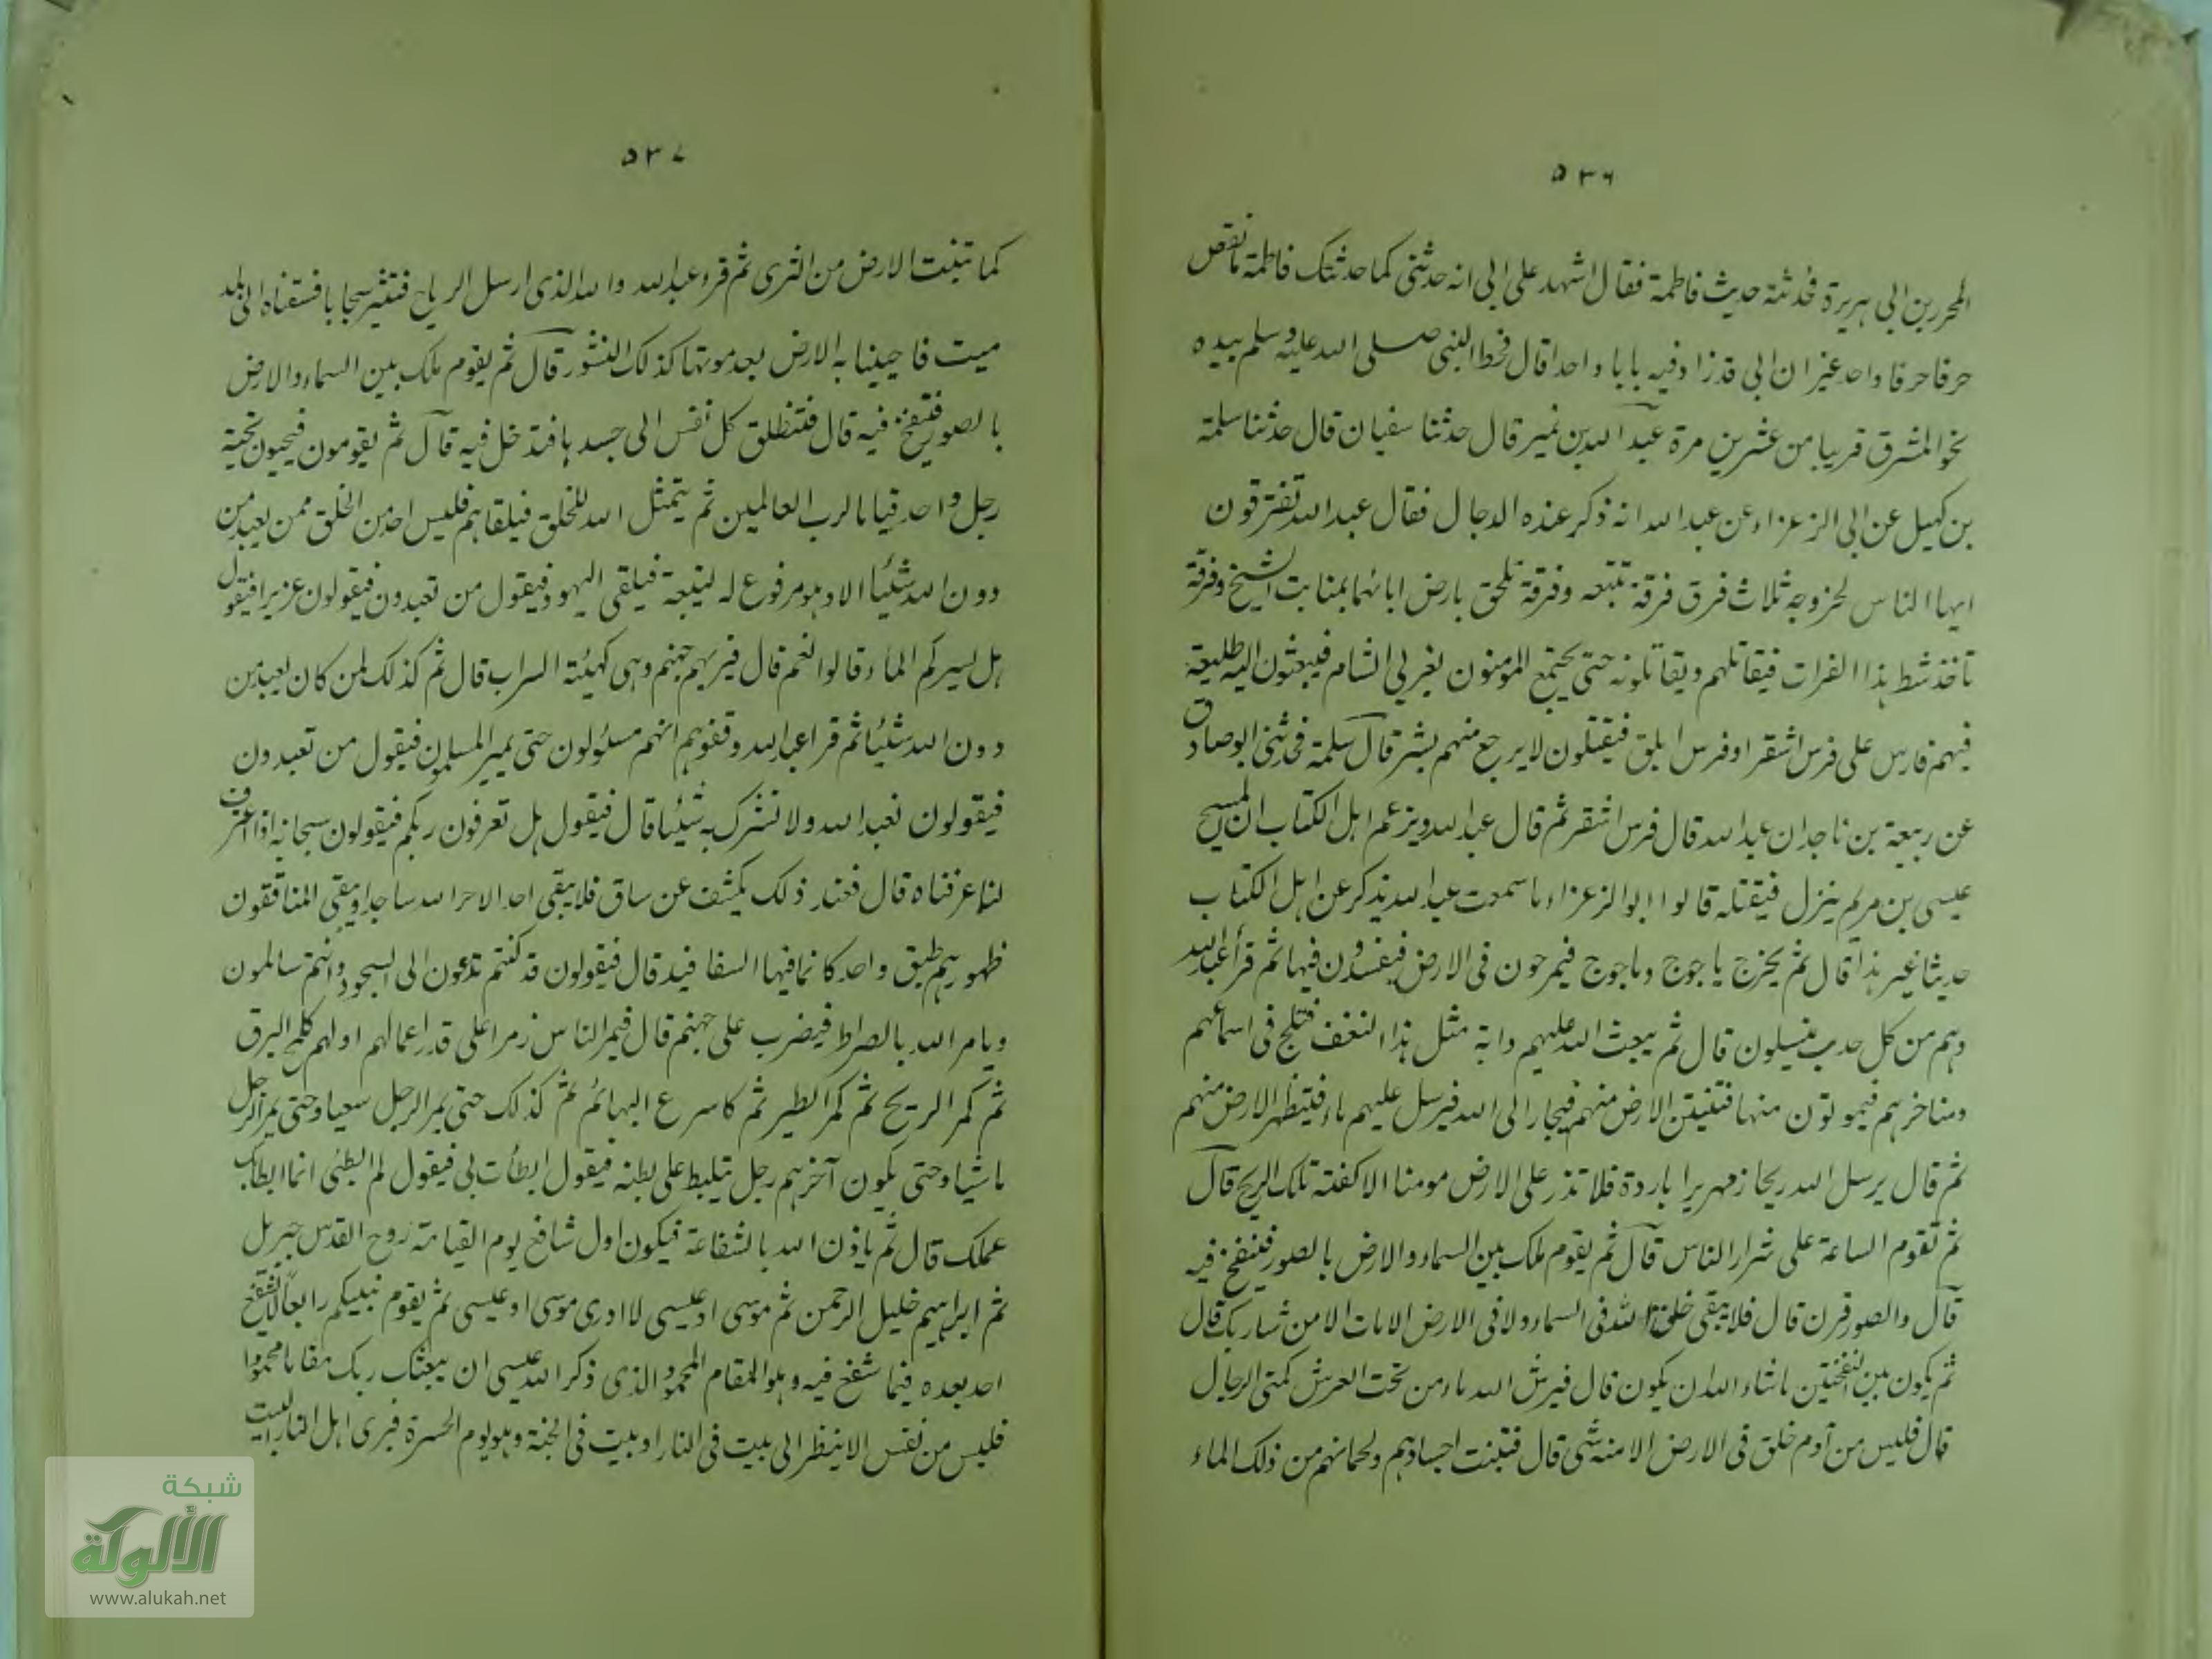 ٥٣٦
المحرر بن ابى هريرة فحدثته حديث فاطمة فقال اشهد على ابى انه حدثنى كما حدثتك فاطمة ما نقص
حرفا حرفا واحد غير ان ابى قد زاد فيه بابا واحدا قال فخط النبى صلى الله عليه وسلم بيده
نحو المشرق قريبا من عشرين مرة عبد الله بن نمير قال حدثنا سفيان قال حدثنا سلمة
بن كهيل عن ابى الزعراء عن عبد الله انه ذكر عنده الدجال فقال عبد الله تفترقون
ايها الناس لخروجه ثلاث فرق فرقة تتبعه وفرقة تلحق بارض ابائها بمنابت الشيح وفرقة
تاخذ شط هذا الفرات فيقاتلهم ويقاتلونه حتى يجتمع المومنون بغربى الشام فيبعثون اليه طليعة
فيهم فارس على فرس اشقر او فرس ابلق فيقتلون لا يرجع منهم بشر قال سلمة فحدثنى ابو صادق
عن ربيعة بن ناجد ان عبد الله قال فرس اشقر ثم قال عبد الله ويزعم اهل الكتاب ان المسيح
عيسى بن مريم ينزل فيقتله قالوا ابو الزعراء ما سمعت عبد الله يذكر عن اهل الكتاب
حديثا غير هذا قال ثم يخرج ياجوج وماجوج فيمرحون فى الارض فيفسدون فيها ثم قرأ عبد الله
وهم من كل حدب ينسلون قال ثم يبعث الله عليهم دابة مثل هذا النغف فتلج فى اسماعهم
ومناخرهم فيموتون منها فتنتن الارض منهم فيجار الى الله فيرسل عليهم ماء فيتطهر الارض منهم
ثم قال يرسل الله ريحا زمهريرا باردة فلا تذر على الارض مومنا الا كفتته تلك الريح قال
ثم تقوم الساعة على شرار الناس قال ثم يقوم ملك بين السماء والارض بالصور فينفخ فيه
قال والصور قرن قال فلا يبقى خلق الله فى السماء ولا فى الارض الا مات الا من شاء ربك قال
ثم يكون بين النفختين ما شاء الله ان يكون قال فيرش الله ماء من تحت العرش كمنى الرجال
قال فليس من آدم خلق فى الارض الا منه شى قال فتنبت اجسادهم ولحمانهم من ذلك الماء
٥٣٧
كما تنبت الارض من الثرى ثم قرء عبد الله والله الذى ارسل الرياح فتثير سحابا فسقناه الى بلد
ميت فاحيينا به الارض بعد موتها كذلك النشور قال ثم يقوم ملك بين السماء والارض
بالصور فينفخ فيه قال فتنطلق كل نفس الى جسدها فتدخل فيه قال ثم يقومون فيحيون تحية
رجل واحد قياما لرب العالمين ثم يتمثل الله للخلق فيلقاهم فليس احد من الخلق ممن يعبد من
دون الله شيئا الا وهو مرفوع له ليتبعه فيلقى اليهود فيقول من تعبدون فيقولون عزيرا فيقول
هل يسركم الماء قالوا نعم قال فيريهم جهنم وهى كهيئة السراب قال ثم كذلك لمن كان يعبد من
دون الله شيئا ثم قرا عبد الله وقفوهم انهم مسئولون حتى يمر المسلمون فيقول من تعبدون
فيقولون نعبد الله ولا نشرك به شيئا قال فيقول هل تعرفون ربكم فيقولون سبحانه اذا اعترف
لنا عرفناه قال فعند ذلك يكشف عن ساق فلا يبقى احد الا خر لله ساجدا ويبقى المنافقون
ظهورهم طبق واحد كانما فيها السفافيد قال فيقولون قد كنتم تدعون الى السجود وانتم سالمون
ويامر الله بالصراط فيضرب على جهنم قال فيمر الناس زمرا على قدر اعمالهم اولهم كلمح البرق
ثم كمر الريح ثم كمر الطير ثم كاسرع البهائم ثم كذلك حتى يمر الرجل سعيا وحتى يمر الرجل
ماشيا وحتى يكون آخرهم رجل يتلبط على بطنه فيقول ابطأت بى فيقول لم ابطئ انما ابطا بك
عملك قال ثم ياذن الله بالشفاعة فيكون اول شافع يوم القيامة روح القدس جبريل
ثم ابراهيم خليل الرحمن ثم موسى او عيسى لا ادرى موسى او عيسى ثم يقوم نبيكم رابعا لا يشفع
احد بعده فيما شفع فيه وهو المقام المحمود الذى ذكر الله عسى ان يبعثك ربك مقاما محمودا
فليس من نفس الا ينظر الى بيت فى النار او بيت فى الجنة وهو يوم الحسرة فيرى اهل النار البيت
شبكة
الألوكة
www.alukah.net